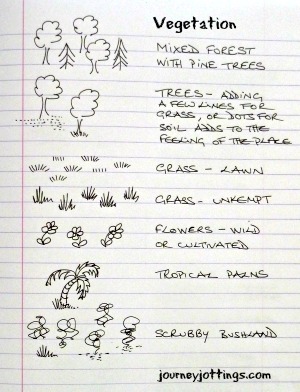 Vegetation
MIXED FOREST
WITH PINE TREES
TREES - ADDING
A FEW LINES FOR
GRASS, OR DOTS FOR
SOIL ADDS TO THE
FEELING OF THE PLACE
GRASS - LAWN
GRASS - UNKEMPT
FLOWERS - WILD
OR CULTIVATED
TROPICAL PALMS
SCRUBBY BUSHLAND
journeyjottings.com